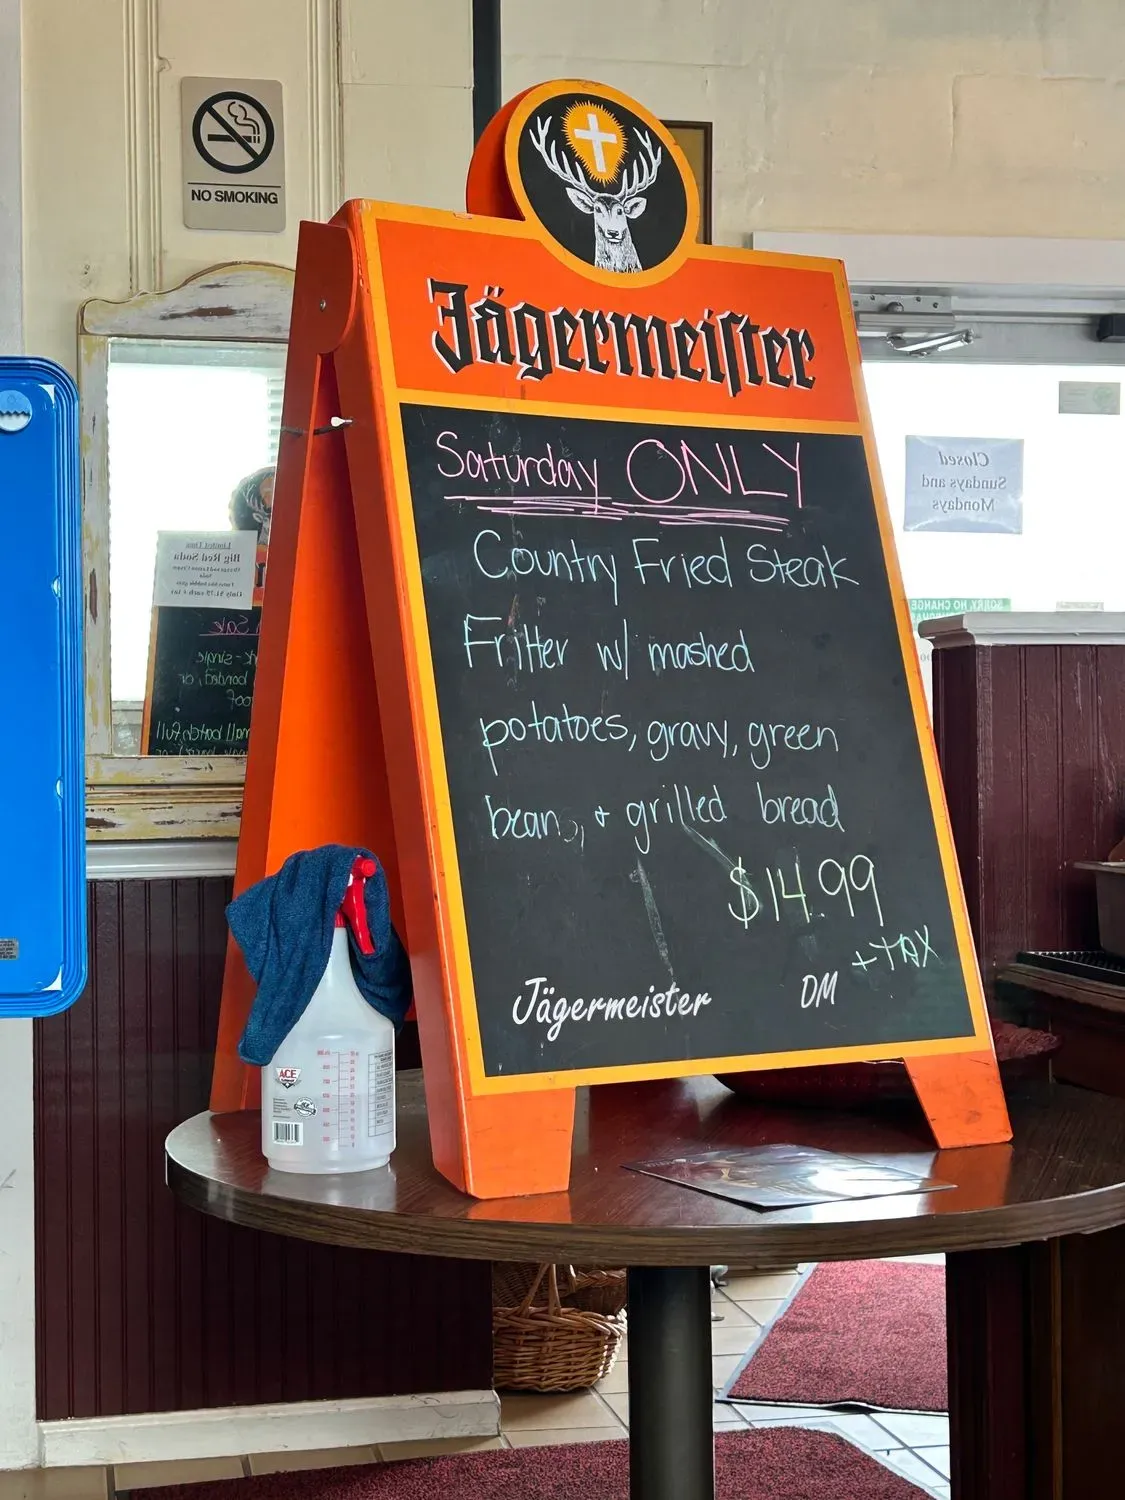 NO SMOKING
Jägermeister
Saturday ONLY
Country Fried Steak
Fritter w/ mashed
potatoes, gravy, green
beans, + grilled bread
$14.99
+ TAX
Jägermeister
DM
Closed
Sundays and
Mondays
SORRY, NO CHANGE
Limited Time
Big Red Soda
ACE